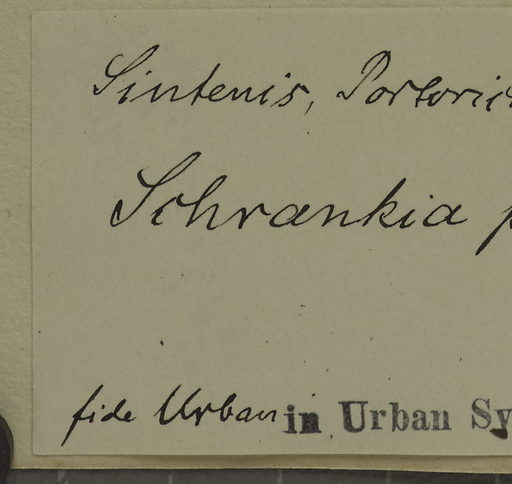 Sintenis, Portoric
Schrankia p
fide Urban in Urban Sy